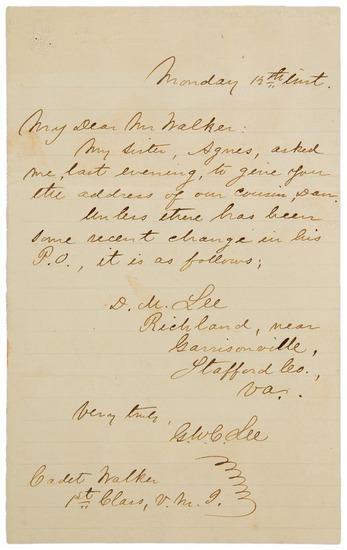 Monday 13th inst.
My Dear Mr Walker:
My sister, Agnes, asked
me last evening, to give you
the address of our cousin, Dan.
Unless there has been
some recent change in his
P.O., it is as follows;
D. M. Lee
Richland, near
Garrisonville,
Stafford Co.,
Va.
Very truly,
G.W.C. Lee
Cadet Walker
1st Class, V. M. I.